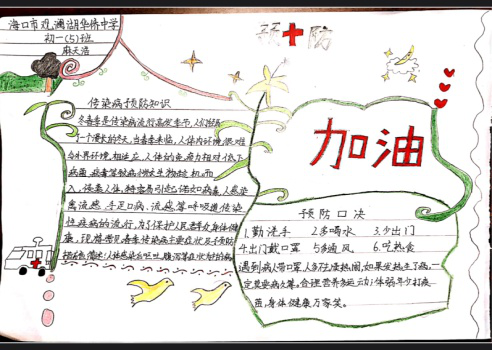 海口市观澜湖华侨中学
初一(5)班
麻天浩
预防
传染病预防知识
冬春季是传染病流行高发季节,人们经历
了一个漫长的冬天,当春季来临,人体内环境很难
与外界环境相适应,人体的免疫力相对低下
病菌、病毒等致病微生物趁机而
入,侵袭人体,特容易引起诸如病毒
流感、手足口病、流感等呼吸道传染
性疾病的流行,为了保护人民群众身体健
康,
加油
预防口决
1.勤洗手 2.多喝水 3.少出门
4.出门戴口罩 5.多通风 6.吃熟食
遇到病人带口罩,人多不凑热闹,如果发热生了病,一
定莫要病久等。合理营养多运动,体弱年少打疫
苗,身体健康万家笑。